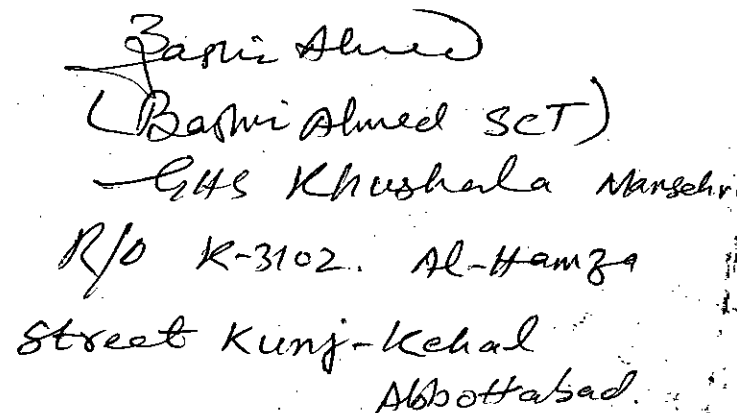 Bashir Ahmed
(Bashir Ahmed SCT)
GHS Khushala Mansehr
R/O K-3102. Al-Hamza
Street Kunj-Kehal
Abbottabad.